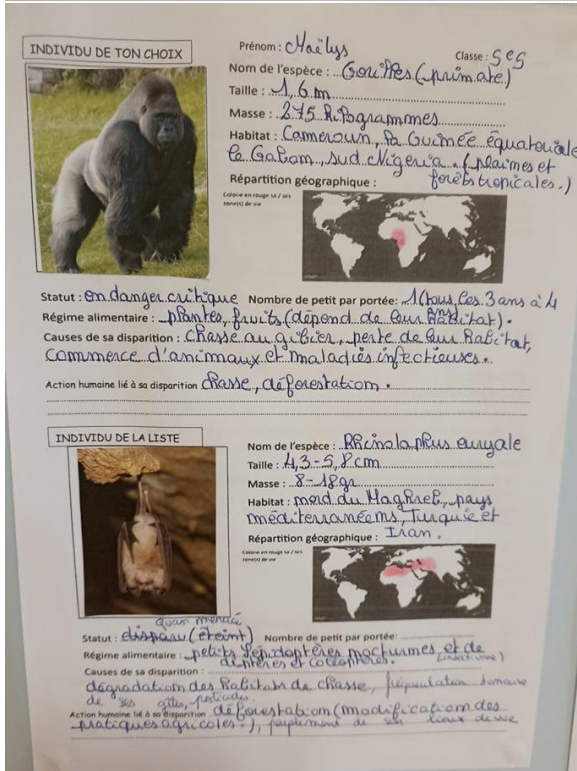 INDIVIDU DE TON CHOIX
Prénom : Maëlys
Classe : 5e5
Nom de l'espèce : Gorilles (primate)
Taille : 1,6 m
Masse : 275 kilogrammes
Habitat : Cameroun, la Guinée équatoriale
le Gabom, sud Nigeria. (plaimes et
forêts tropicales.)
Répartition géographique :
Colorie en rouge sa / ses
zone(s) de vie
Statut : en danger critique Nombre de petit par portée: 1 (tous les 3 ans à 4
ans
Régime alimentaire : plantes, fruits (dépend de leur habitat).
Causes de sa disparition : chasse au gibier, perte de leur habitat,
commerce d'animaux et maladies infectieuses.
Action humaine lié à sa disparition chasse, déforestation.
INDIVIDU DE LA LISTE
Nom de l'espèce : Rhinolaphus euryale
Taille : 4,3-5,8 cm
Masse : 8-18gr
Habitat : nord du Maghreb, pays
méditerranéens, Turquie et
Iran.
Répartition géographique :
Colorie en rouge sa / ses
zone(s) de vie
quasi menacé
Statut : disparu (éteint) Nombre de petit par portée:
Régime alimentaire : petits lépidoptères nocturnes et de
diptères et coléoptères. (insectivore)
Causes de sa disparition :
dégradation des habitats de chasse, fréquentation humaine
de ses gîtes, pesticides.
Action humaine lié à sa disparition déforestation (modification des
pratiques agricoles.), de ses lieux de vie